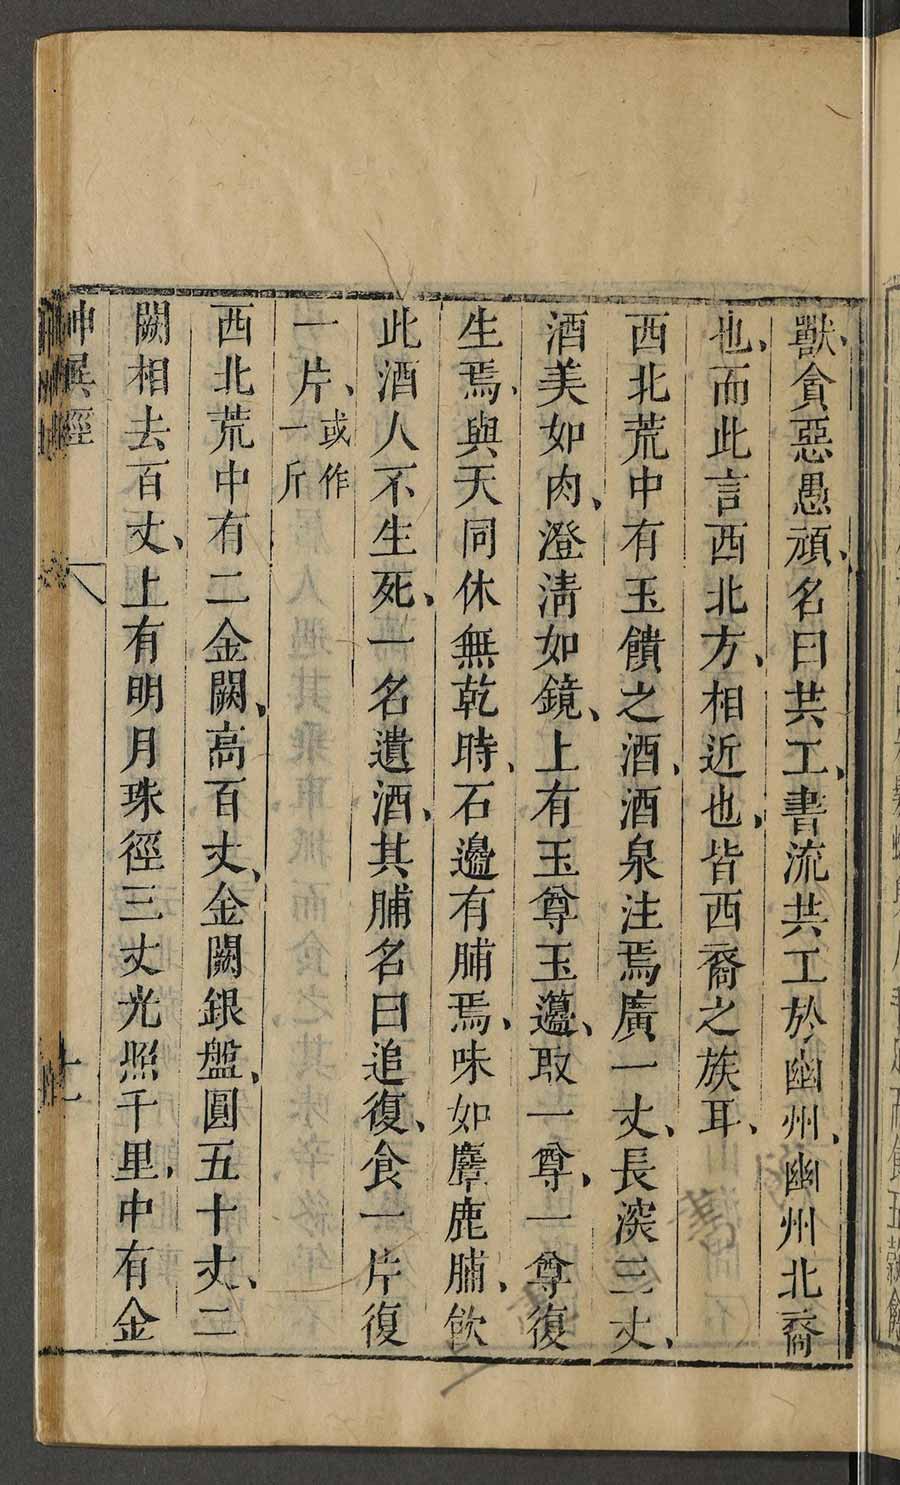 獸、貪惡愚頑、名曰共工、書流共工於幽州、幽州北裔
也、而此言西北方、相近也、皆西裔之族耳、
西北荒中有玉饋之酒、酒泉注焉廣一丈、長深三丈、
酒美如肉、澄清如鏡、上有玉尊玉籩、取一尊、一尊復
生焉、與天同休無乾時、石邊有脯焉、味如麞鹿脯、飲
此酒人不生死、一名遺酒、其脯名曰追復、食一片復
一片、或作一斤
西北荒中有二金闕、高百丈、金闕銀盤、圓五十丈、二
闕相去百丈、上有明月珠徑三丈光照千里、中有金
神異經
十